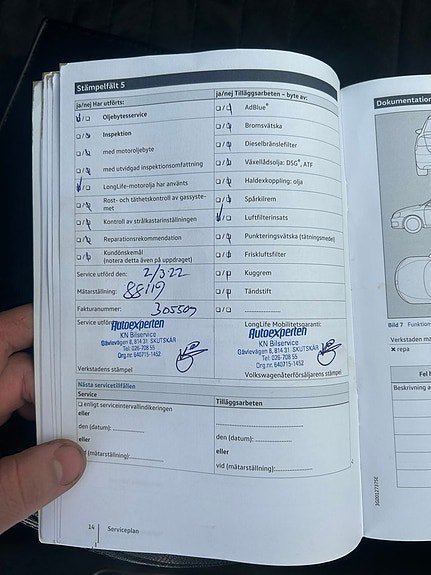 Stämpelfält 5
ja/nej Har utförts:
☑/☐ Oljebytesservice
☐/☑ Inspektion
☐/☑ med motoroljebyte
☐/☑ med utvidgad inspektionsomfattning
☑/☐ LongLife-motorolja har använts
☐/☑ Rost- och täthetskontroll av gassyste-
met
☐/☑ Kontroll av strålkastarinställningen
☐/☑ Reparationsrekommendation
☐/☑ Kundönskemål
(notera detta även på uppdraget)
Service utförd den: 2/3 22
Mätarställning: 88119
Fakturanummer: 305509
Service utförd
Autoexperten
KN Bilservice
Gävlevägen 8, 814 31 SKUTSKÄR
Tel: 026-708 55
Org.nr. 640715-1452
Verkstadens stämpel
ja/nej Tilläggsarbeten – byte av:
☐/☑ AdBlue®
☐/☑ Bromsvätska
☐/☑ Dieselbränslefilter
☐/☑ Växellådsolja: DSG®, ATF
☐/☑ Haldexkoppling: olja
☐/☑ Spårkilrem
☑/☐ Luftfilterinsats
☐/☑ Punkteringsvätska (tätningsmedel)
☐/☑ Friskluftsfilter
☐/☑ Kuggrem
☐/☑ Tändstift
☐/☐
LongLife Mobilitetsgaranti:
Autoexperten
KN Bilservice
Gävlevägen 8, 814 31 SKUTSKÄR
Tel: 026-708 55
Org.nr. 640715-1452
Volkswagenåterförsäljarens stämpel
Nästa servicetillfällen
Service
☐ enligt serviceintervallindikeringen
eller
den (datum):
eller
vid (mätarställning):
Tilläggsarbeten
den (datum):
eller
vid (mätarställning):
14 Serviceplan
Dokumentation
Bild 7 Funktions
Verkstaden ma
✕ repa
Fel h
Beskrivning a